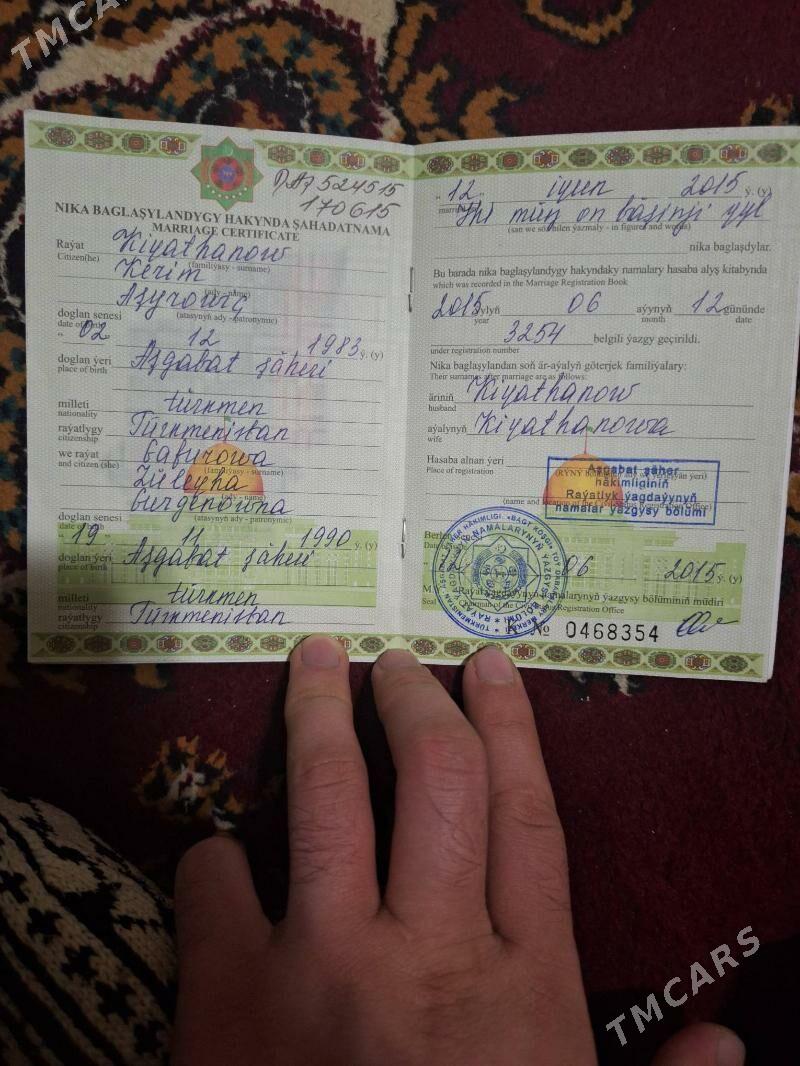 TMCARS
П.А7 524515
170615
NIKA BAGLAŞYLANDYGY HAKYNDA ŞAHADATNAMA
MARRIAGE CERTIFICATE
Raýat Kiyathanow
Citizen(he) (familiýasy - surname)
Kerim
(ady - name)
Aşyrowiç
(atasynyň ady - patronymic)
doglan senesi
date of birth
" 02 " 12 1983 ý. (y)
doglan ýeri Aşgabat şäheri
place of birth
milleti türkmen
nationality
raýatlygy Türkmenistan
citizenship
we raýat Gafurowa
and citizen (she) (familiýasy - surname)
Züleýha
(ady - name)
Gurgenowna
doglan senesi (atasynyň ady - patronymic)
date of
" 19 " 11 1990 ý. (y)
doglan ýeri Aşgabat şäheri
place of birth
milleti türkmen
nationality
raýatlygy Türkmenistan
citizenship
" 12 " iýun 2015 ý. (y)
Iki müň on bäşinji ýyl
(san we sözler bilen ýazmaly - in figure and words)
nika baglaşdylar.
Bu barada nika baglaşylandygy hakyndaky namalary hasaba alyş kitabynda
which was recorded in the Marriage Registration Book
2015 ýylyň 06 aýynyň 12 gününde
year month date
3254 belgili ýazgy geçirildi.
under registration number
Nika baglaşylandan soň är-aýalyň göterjek familiýalary:
Their surnames after marriage are as follows:
äriniň Kiyathanow
husband
aýalynyň Kiyathanowa
wife
Hasaba alnan ýeri
Place of registration
Aşgabat şäher
häkimliginiň
Raýatlyk ýagdaýynyň
namalar ýazgysy bölümi
12 06 2015 ý. (y)
namalarynyň ýazgysy bölüminiň müdiri
Registration Office
K № 0468354
TMCARS